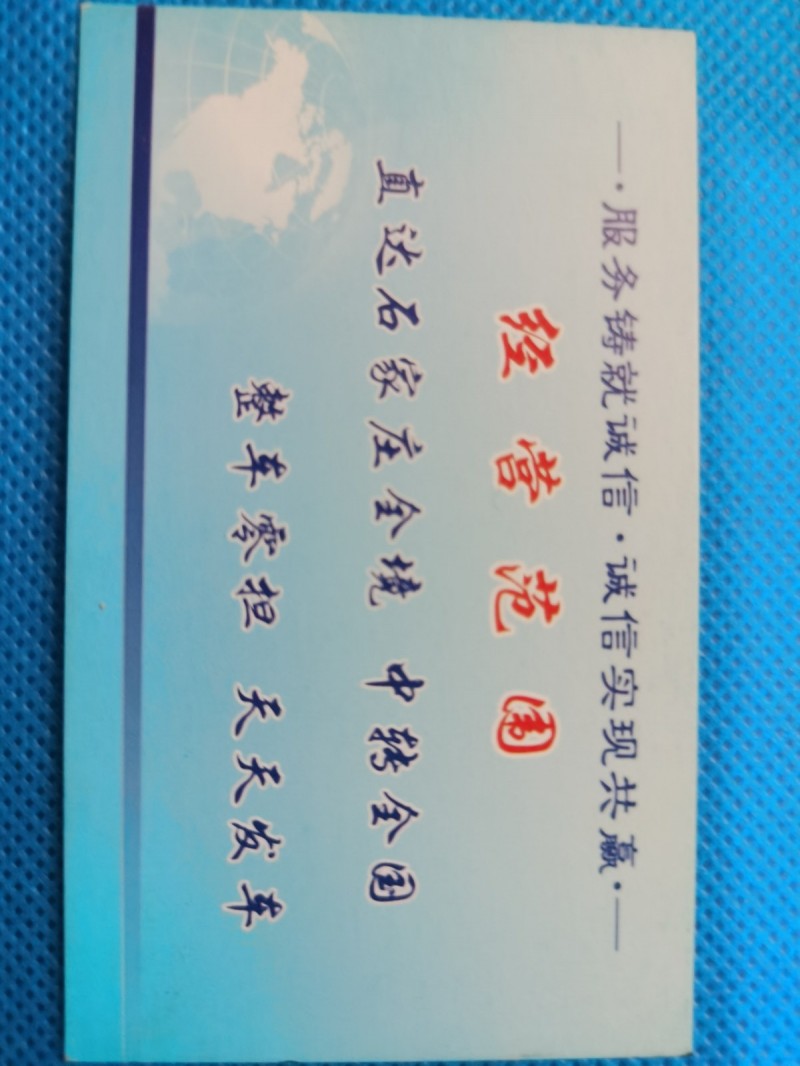 —·服务铸就诚信·诚信实现共赢·—
经营范围
直达石家庄全境 中转全国
整车零担 天天发车